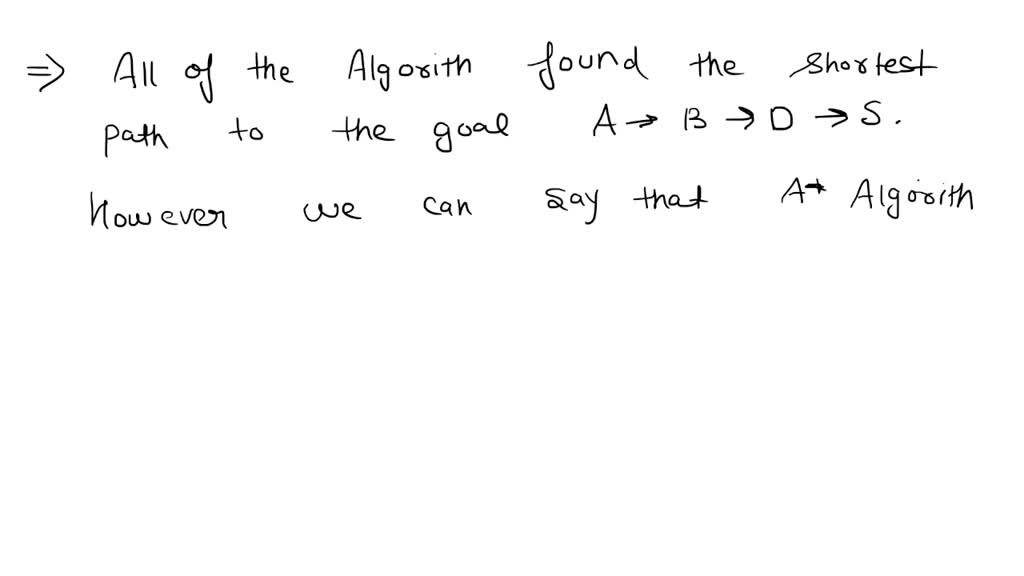 ⇒ All of the Algorith found the shortest
path to the goal A → B → D → S.
however we can say that A* Algorith